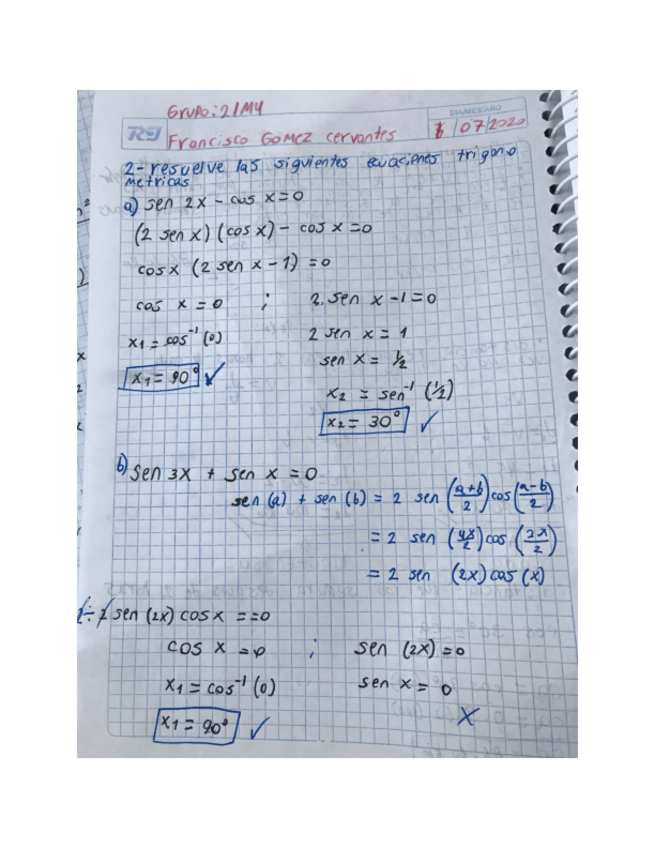 Grupo: 21M4
DIA/MES/AÑO
Francisco Gomez Cervantes
07 2020
2- resuelve las siguientes ecuaciones trigono
metricas
a) sen 2x - cos x = 0
(2 sen x) (cos x) - cos x = 0
cos x (2 sen x - 1) = 0
cos x = 0 ; 2. sen x - 1 = 0
x1 = cos⁻¹ (0) 2 sen x = 1
sen x = 1/2
x1 = 90° ✓
x2 = sen⁻¹ (1/2)
x2 = 30° ✓
b) sen 3x + sen x = 0
sen (a) + sen (b) = 2 sen (a+b/2) cos (a-b/2)
= 2 sen (4x/2) cos (2x/2)
= 2 sen (2x) cos (x)
2 sen (2x) cos x = = 0
cos x = 0 ; sen (2x) = 0
x1 = cos⁻¹ (0) sen x = 0
x1 = 90° ✓ X